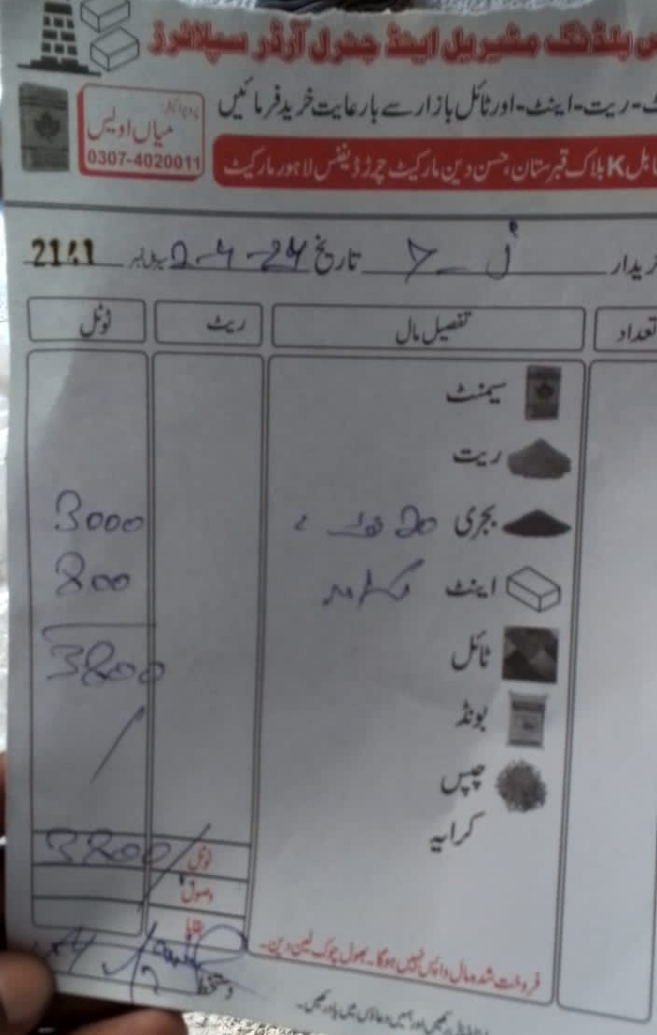 بلڈنگ مٹیریل اینڈ جنرل آرڈر سپلائرز
ریت-اینٹ-اور ٹائل بازار سے بارعایت خرید فرمائیں
پروپرائیٹر
میاں اویس
0307-4020011
K بلاک قبرستان، حسن دین مارکیٹ چرڑ ڈیفنس لاہور مارکیٹ
تاریخ 2-4-24 2141
تعداد تفصیل مال ریٹ ٹوٹل
سیمنٹ
ریت
بجری 20 3000
اینٹ 800
3800
ٹائل
بونڈ
چپس
کرایہ
ٹوٹل 3800
وصولی
بقایا
فروخت شدہ مال واپس نہیں ہوگا۔ بھول چوک لین دین۔
دستخط